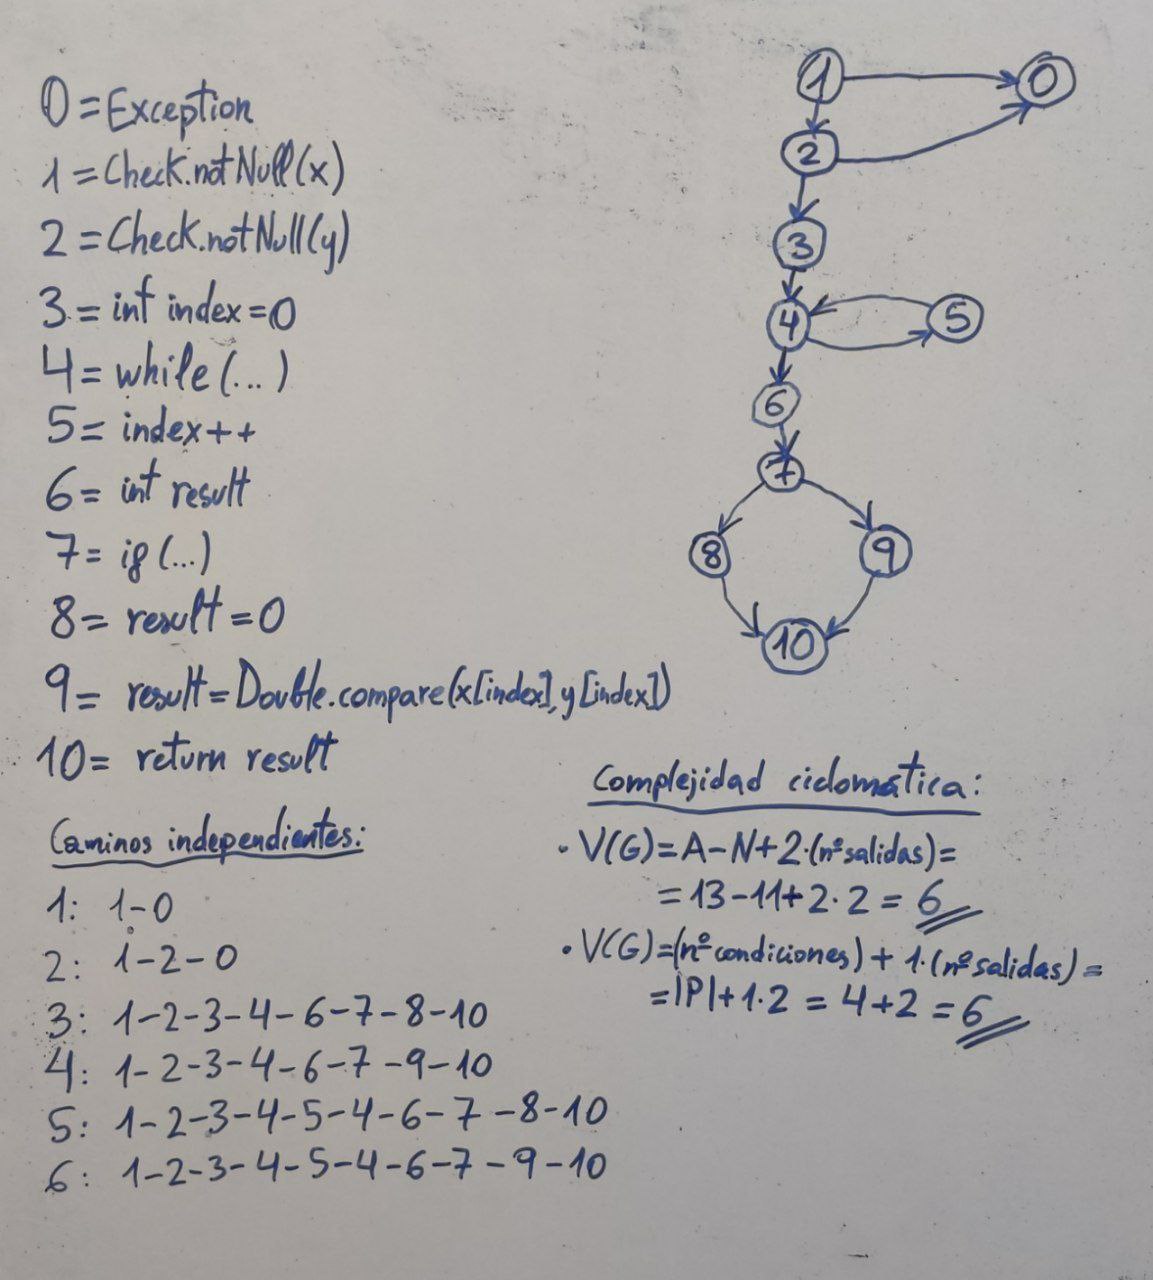 0=Exception
1=Check.notNull(x)
2=Check.notNull(y)
3=int index=0
4=while(...)
5=index++
6=int result
7=if(...)
8=result=0
9=result=Double.compare(x[index],y[index])
10=return result
Caminos independientes:
1: 1-0
2: 1-2-0
3: 1-2-3-4-6-7-8-10
4: 1-2-3-4-6-7-9-10
5: 1-2-3-4-5-4-6-7-8-10
6: 1-2-3-4-5-4-6-7-9-10
1
0
2
3
4
5
6
7
8
9
10
Complejidad ciclomática:
· V(G)=A-N+2·(nº salidas)=
=13-11+2·2=6
· V(G)=(nº condiciones)+1·(nº salidas)=
=|P|+1·2=4+2=6